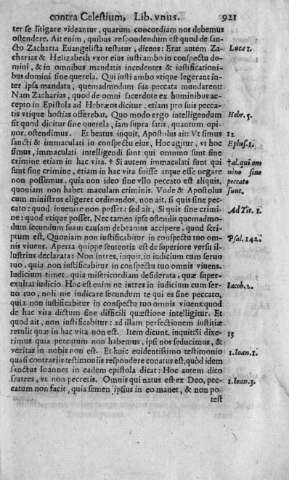 contra Celestium, Lib. vnus. 921
ter se fatigare videantur, quarum concordiam nos debemus
ostendere. Ait enim, quibus respondendum est quod de san-
cto Zacharia Euangelista testatur, dicens: Erat autem Za- Lucæ 1.
charias & Helizabeth vxor eius iusti ambo in conspectu do-
mini, & in omnibus mandatis incedentes & iustificationi-
bus domini sine querela. Qui iusti ambo vtique legerant in-
ter ipsa mandata, quemadmodum sua peccata mundarent:
Nam Zacharias, quod de omni sacerdote ex hominibus ac-
cepto in Epistola ad Hebræos dicitur, etiam pro suis pecca-
tis vtique hostias offerebat. Quo modo ergo intelligendum Hebr. 5.
sit quod dicitur sine querela, iam supra satis, quantum opi-
nor, ostendimus. Et beatus inquit, Apostolus ait: Vt simus 12
sancti & immaculati in conspectu eius, Hoc agitur, vt hoc Ephes. 1.
simus, immaculati intelligendi sunt qui omnino sunt sine
crimine etiam in hac vita. † Si autem immaculati sunt qui †al. qui om
sunt sine crimine, etiam in hac vita fuisse atque esse negare nino sine
non possumus, quia non ideo sine vllo peccato est aliquis, peccato
quoniam non habet maculam criminis. Vnde & Apostolus sunt.
cum ministros eligeret ordinandos, non ait, si quis sine pec-
cato: quod inuenire non posset: sed ait, Si quis sine crimi- Ad Tit. 1.
ne: quod vtique posset. Nec tamen ipse ostendit quemadmo-
dum secundum suam causam debeamus accipere, quod scri-
ptum est, Quoniam non iustificabitur in conspectu tuo om- Psal. 142.
nis viuens. Aperta quippe sententia est de superiore versu il-
lustrius declarata: Non intres, inquit, in iudicium cum seruo
tuo, quia non iustificabitur in conspectu tuo omnis viuens.
Iudicium timet, quia misericordiam desiderat, quæ super-
exultat iudicio. Hoc est enim ne intres in iudicium cum ser- Iacob. 2.
uo tuo, noli me iudicare secundum te qui es sine peccato,
quia non iustificabitur in conspectu tuo omnis viuens: quod
de hac vita dictum sine difficili quæstione intelligitur. Et
quod ait, non iustificabitur: ad illam perfectionem iustitiæ
retulit quæ in hac vita non est. Item dicunt, inquit: Si dixe- 13
rimus quia peccatum non habemus, ipsi nos seducimus, &
veritas in nobis non est. Et huic euidentissimo testimonio 1. Ioan. 1.
quasi contrariis testimoniis respondere conatus est, quod idem
sanctus Ioannes in eadem epistola dicat: Hoc autem dico
fratres, vt non peccetis. Omnis qui natus est ex Deo, pec- 1. Ioan. 3.
catum non facit, quia semen ipsius in eo manet, & non po
test